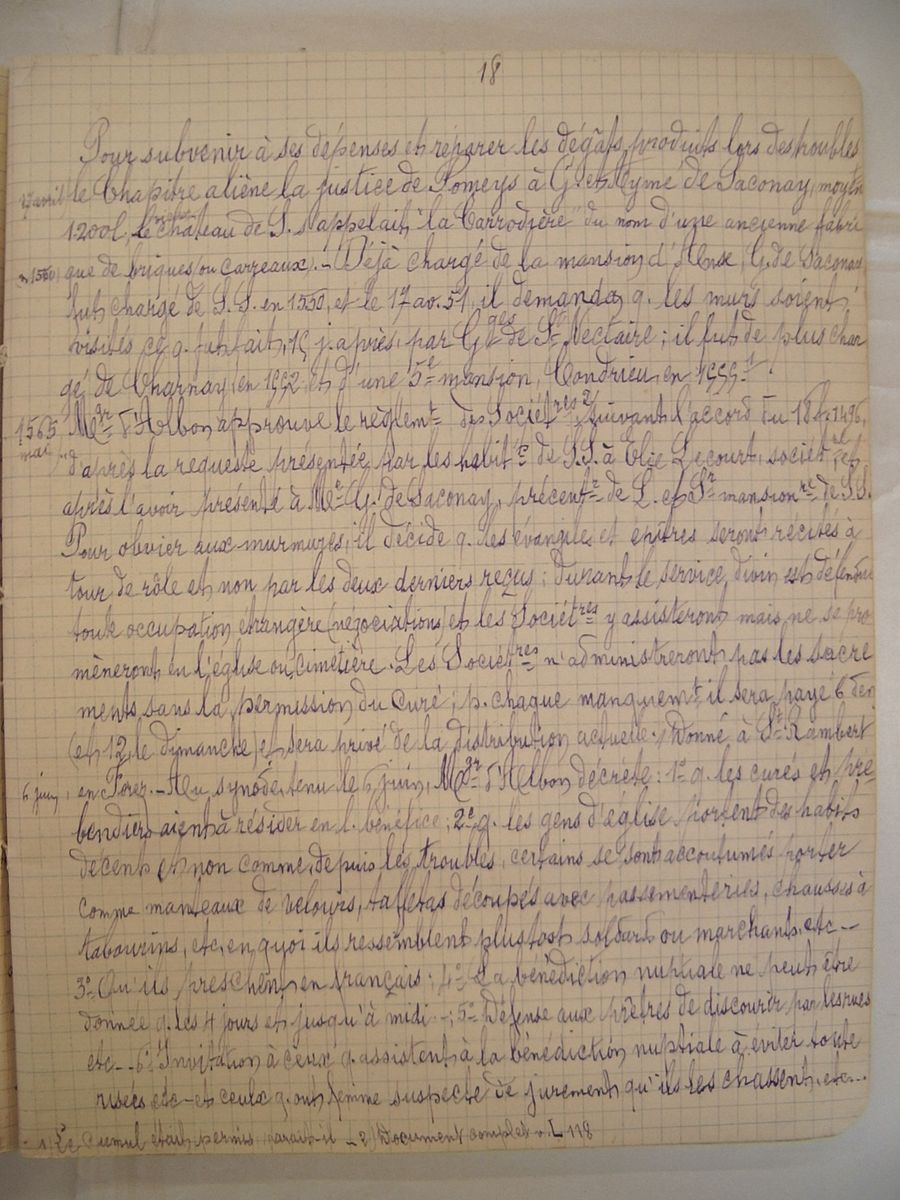 18
Pour subvenir à ses dépenses et réparer les dégâts produits lors des troubles
17 avril le Chapitre aliène la justice de Pomeys à G. et Cyme de Saconay, moyen
1200l, le château de S. s'appelait "la Carrodière" du nom d'une ancienne fabri
1550 que de briques (ou carreaux). - Déjà chargé de la mansion d'Anse, G. de Saconay
fut chargé de S.S. en 1550, et le 17 av. 51, il demanda q. les murs soient
visités ce q. fut fait, 15 j. après, par Gges de St Nectaire ; il fut de plus char
gé de Charnay en 1552 et d'une 5e mansion, Condrieu en 1555. 1
1565 Mgr d'Albon approuve le règlemt des Sociétres 2, suivant l'accord du 18 1496,
mai d'après la requeste présentée par les habits de S.S. à Elie Lecourt, societ, et
après l'avoir présenté à Me G. de Saconay, précentr de L. et Sr mansionre de S.S.
Pour obvier aux murmures, il décide q. les évangiles et epitres seront récités à
tour de rôle et non par les deux derniers reçus ; durant le service divin est défendue
toute occupation étrangère (négociations) et les Sociétres y assisteront mais ne se pro
mèneront en l'église ou cimetière. Les Sociétres n'administreront pas les sacre
ments sans la permission du Curé ; p. chaque manquemt il sera payé 6 den
(et 12 le dimanche) et sera privé de la distribution actuelle. Donné à St Rambert
6 juin, en Forez. - Au synode tenu le 6 juin, Mgr d'Albon décrète : 1o q. les curés et pré
bendiers aient à résider en l. bénéfice ; 2e q. les gens d'église portent des habits
décents et non comme, depuis les troubles, certains se sont accoutumés porter
comme manteaux de velours, taffetas découpés avec passementeries, chausses à
tabourins, etc, en quoi ils ressemblent plustost soldarts ou marchants, etc -
3o Qu'ils preschent en français ; 4o La bénédiction nuptiale ne peut être
donnée q. les 4 jours et jusqu'à midi - ; 5o Défense aux prêtres de discourir par les rues
etc - 6o Invitation à ceux q. assistent à la bénédiction nuptiale à éviter toute
risées etc - et ceulx q. ont femme suspecte de jurement qu'ils les chassent, etc...
1) Le cumul était permis, parait-il - 2) Document complet v. L 118